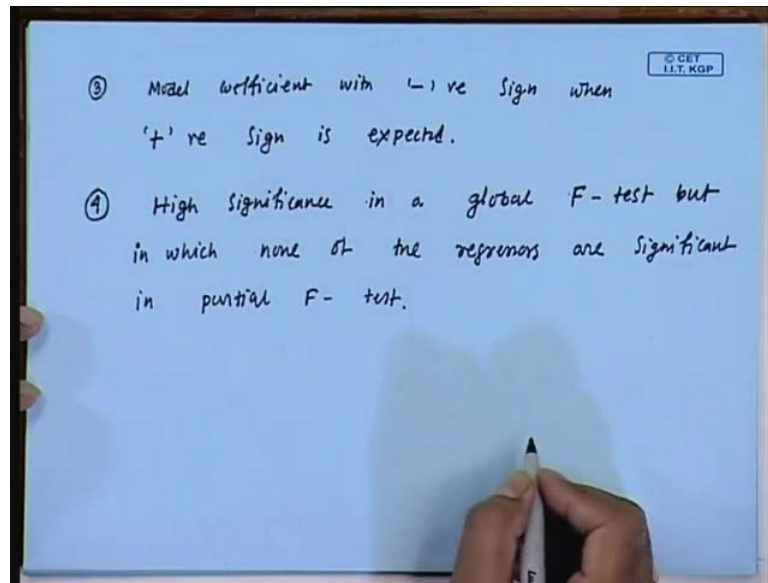 © CET
I.I.T. KGP
③ Model coefficient with '-' ve Sign when
'+' ve Sign is expected.
④ High Significance in a global F-test but
in which none of the regressors are Significant
in partial F- test.